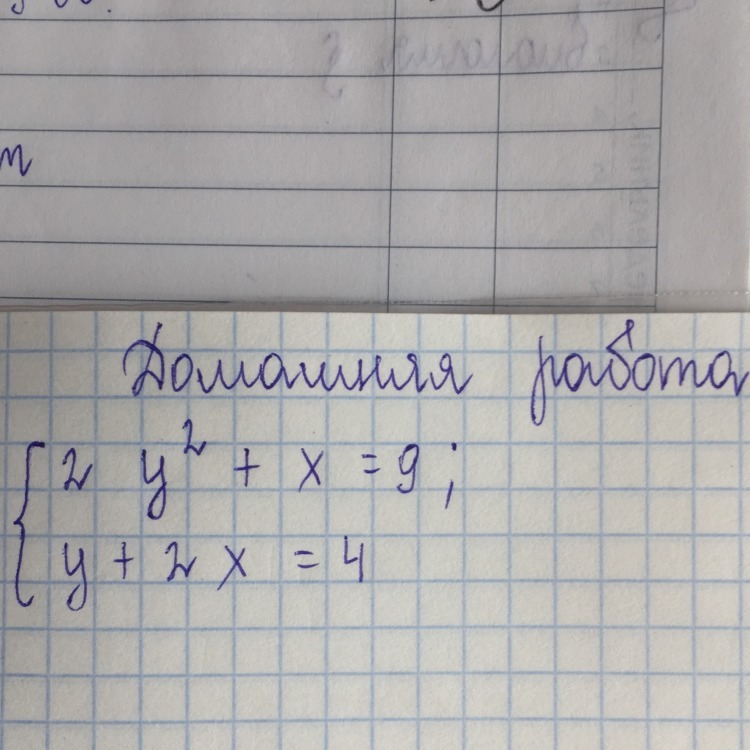 т
Домашняя работа
2 y² + x = 9;
y + 2x = 4